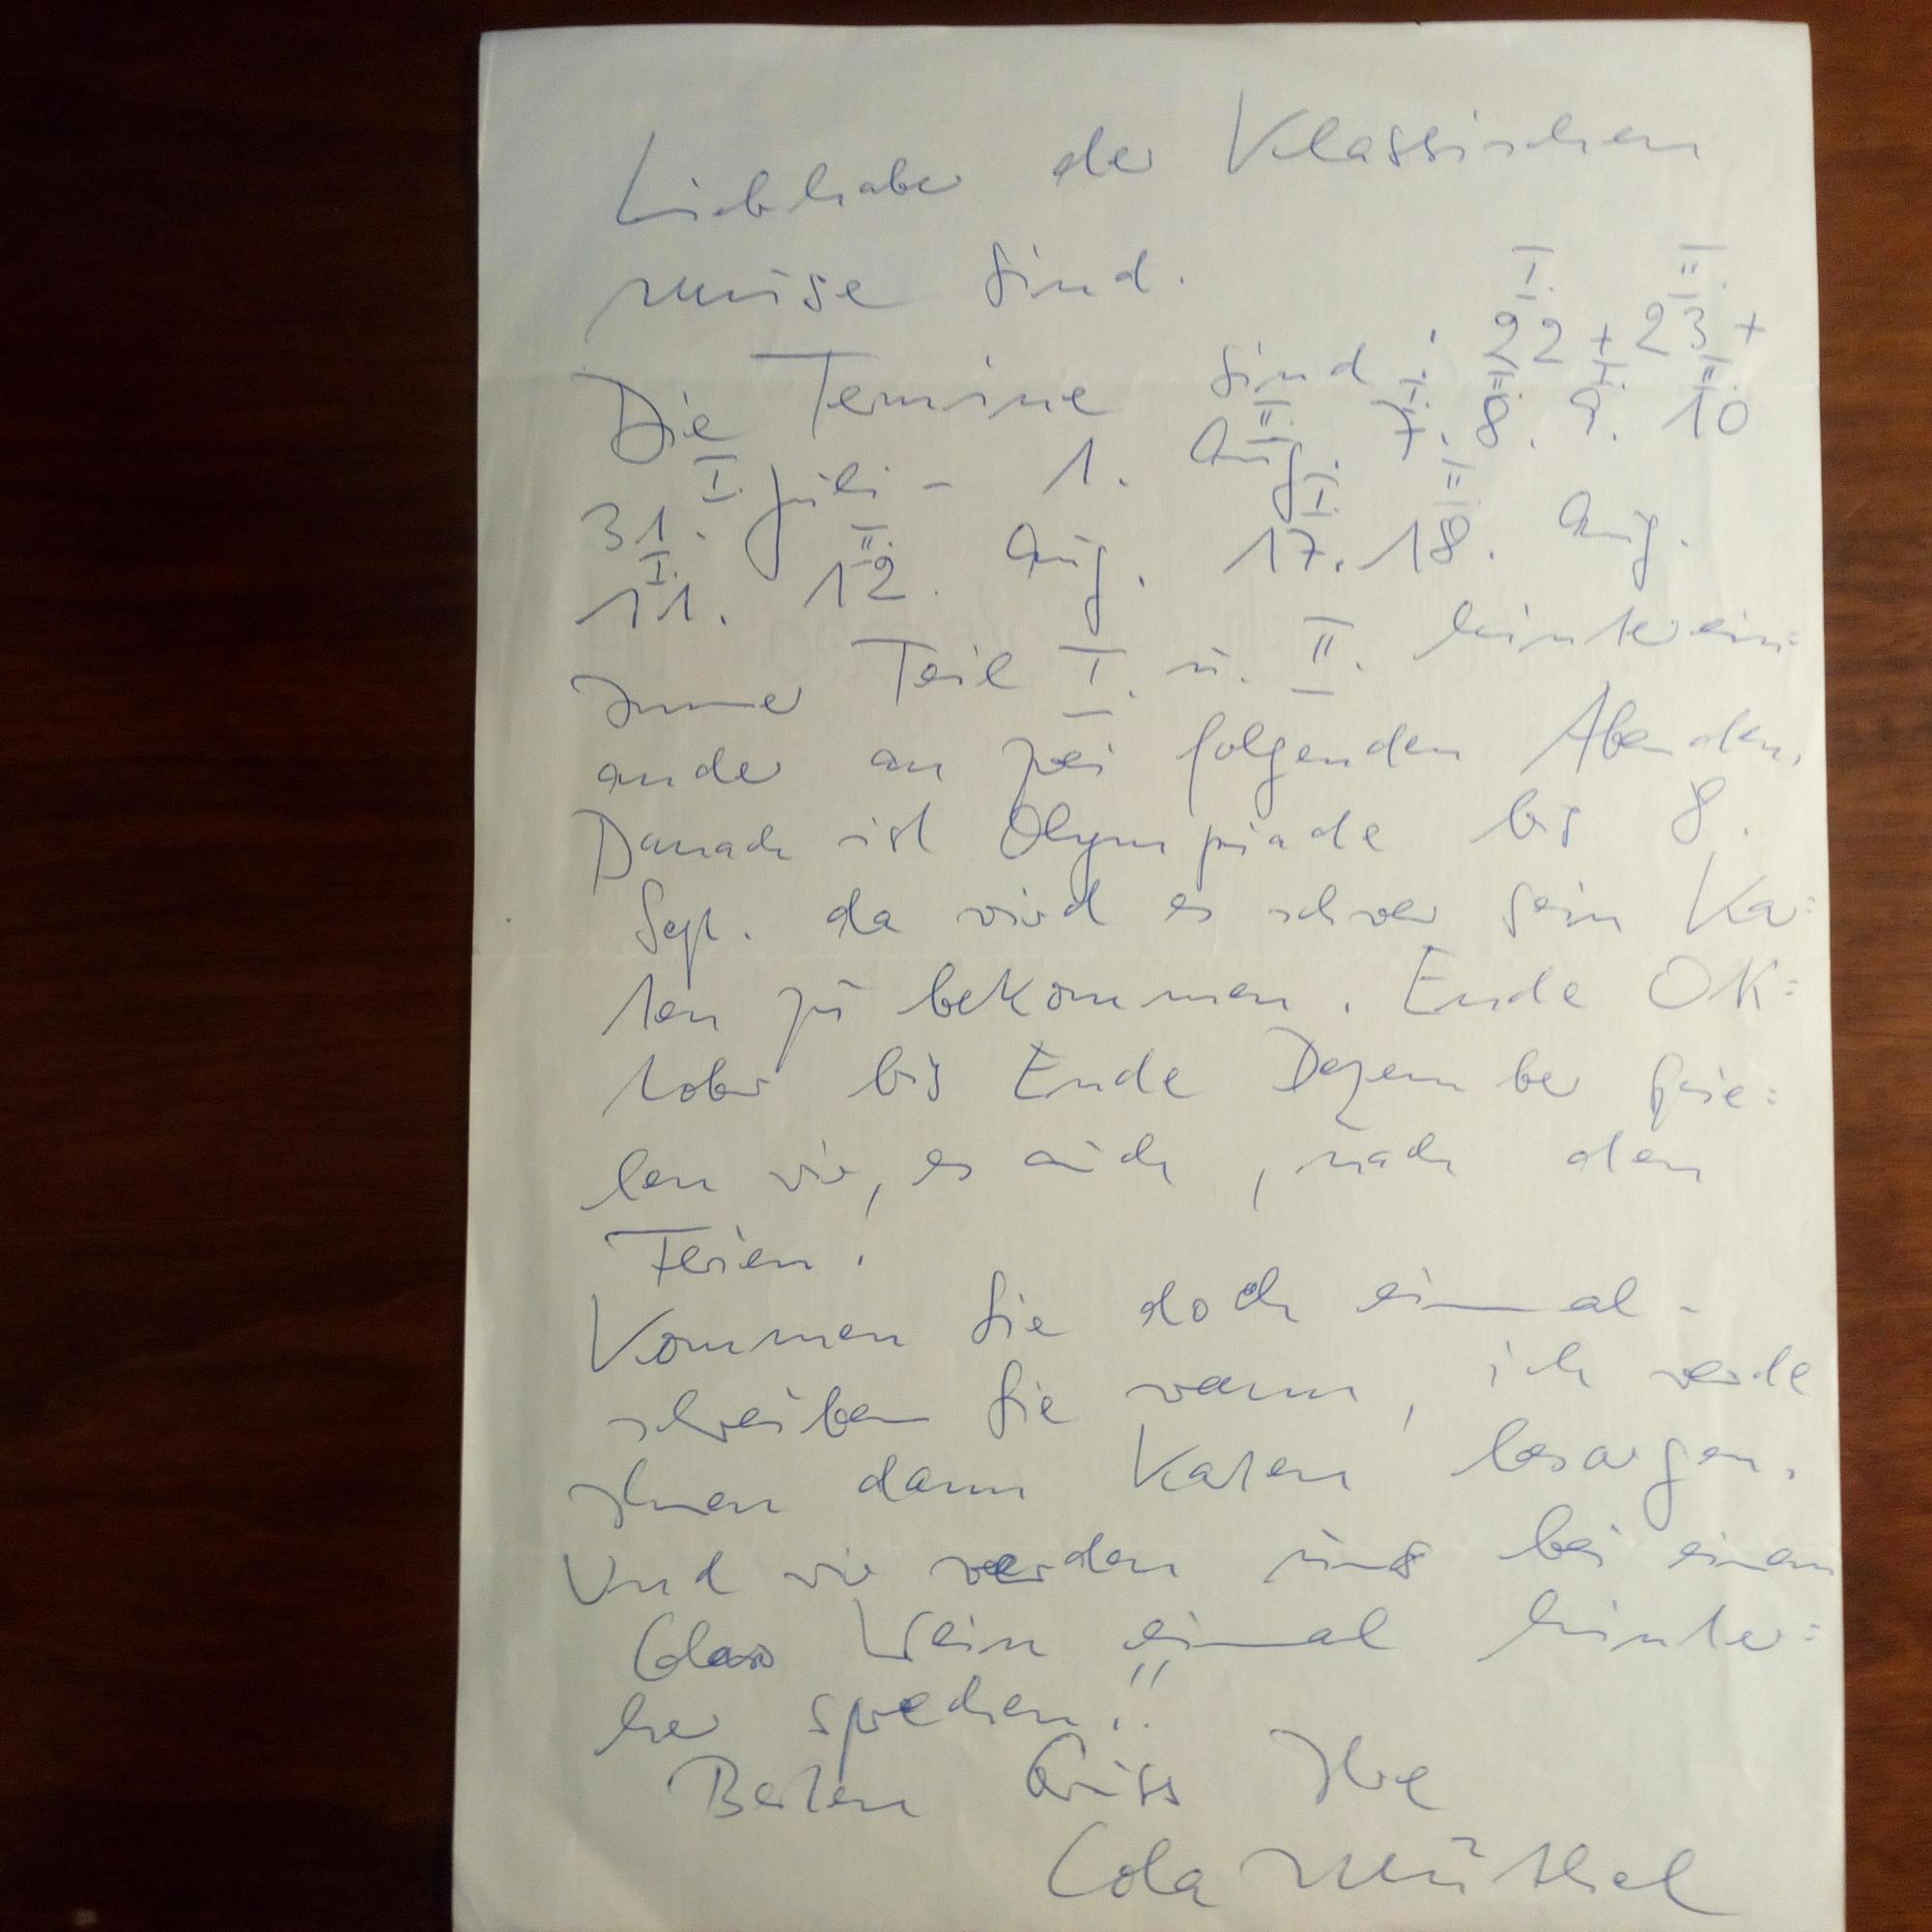 Liebhaber der Klassischen
muise sind.
I. II.
Die Termine sind: 22 + 23 +
I. II. I. II. I. II.
31. Juli - 1. Aug. 7. 8. 9. 10
I. II. I. II.
11. 12. Aug. 17. 18. Aug.
Immer Teil I. u. II. hinterein=
ander an zwei folgenden Abenden.
Danach ist Olympiade bis 8.
Sept. da wird es schwer sein Ka=
ten zu bekommen. Ende Ok=
tober bis Ende Dezember spie=
len wir, es auch, nach den
Ferien.
Kommen Sie doch einmal -
schreiben Sie wann, ich werde
Ihnen dann Katen besorgen.
Und wir werden uns bei einem
Glas Wein einmal hinter=
her sprechen!!
Besten Gruss Ihre
Lola Müthel